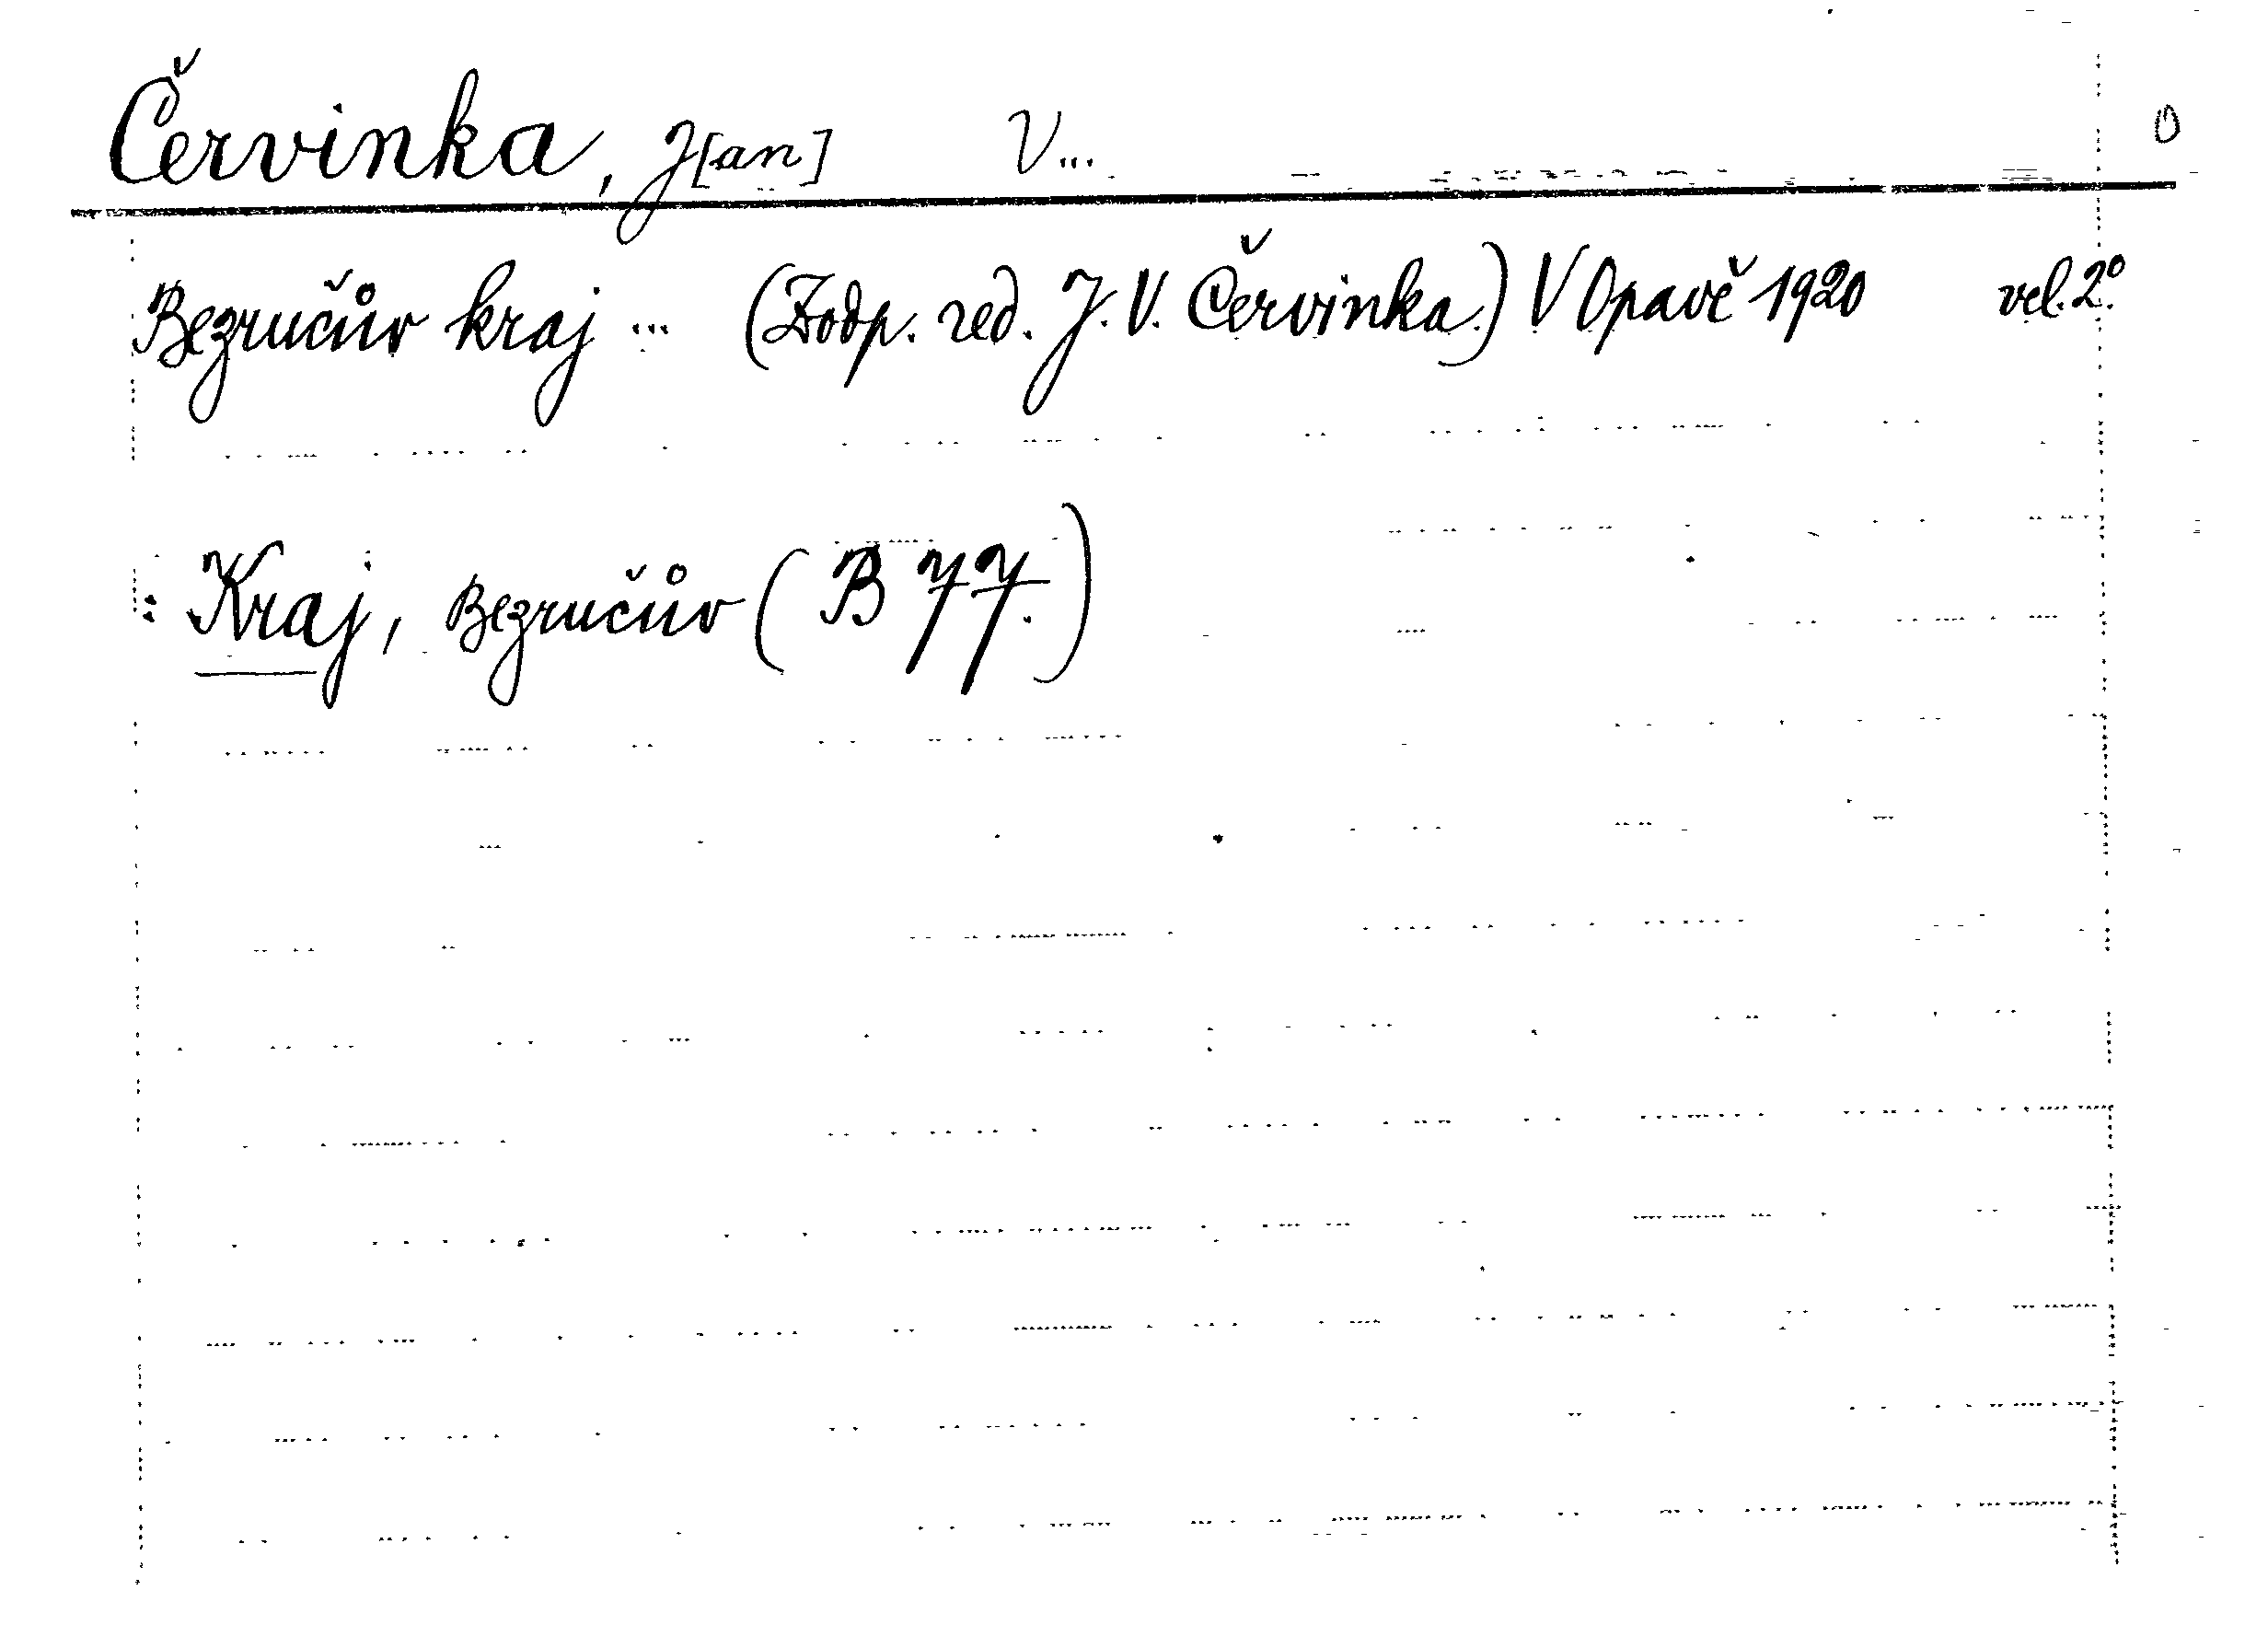 Červinka, J[an] V... O
Bezručův kraj ... (Zodp. red. J. V. Červinka.) V Opavě 1920 vel. 2°.
: Kraj, Bezručův (B 77.)